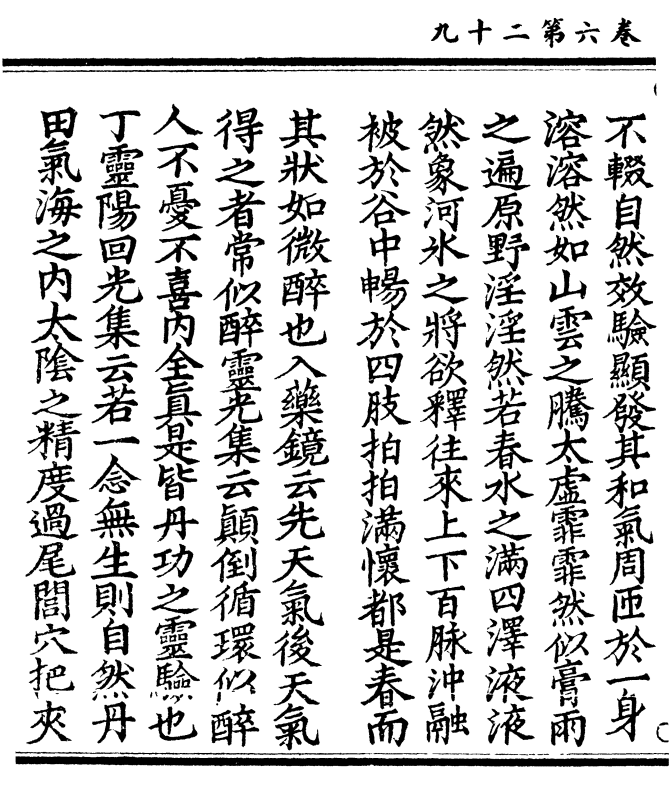 卷六第二十九
不輟自然效驗顯發其和氣周匝於一身
溶溶然如山雲之騰太虛霏霏然似膏雨
之遍原野淫淫然若春水之滿四澤液液
然象河氷之將欲釋往來上下百脉沖融
被於谷中暢於四肢拍拍滿懷都是春而
其狀如微醉也入藥鏡云先天氣後天氣
得之者常似醉靈光集云顛倒循環似醉
人不憂不喜内全眞是皆丹功之靈驗也
丁靈陽回光集云若一念無生則自然丹
田氣海之内太陰之精度過尾閭穴把夾